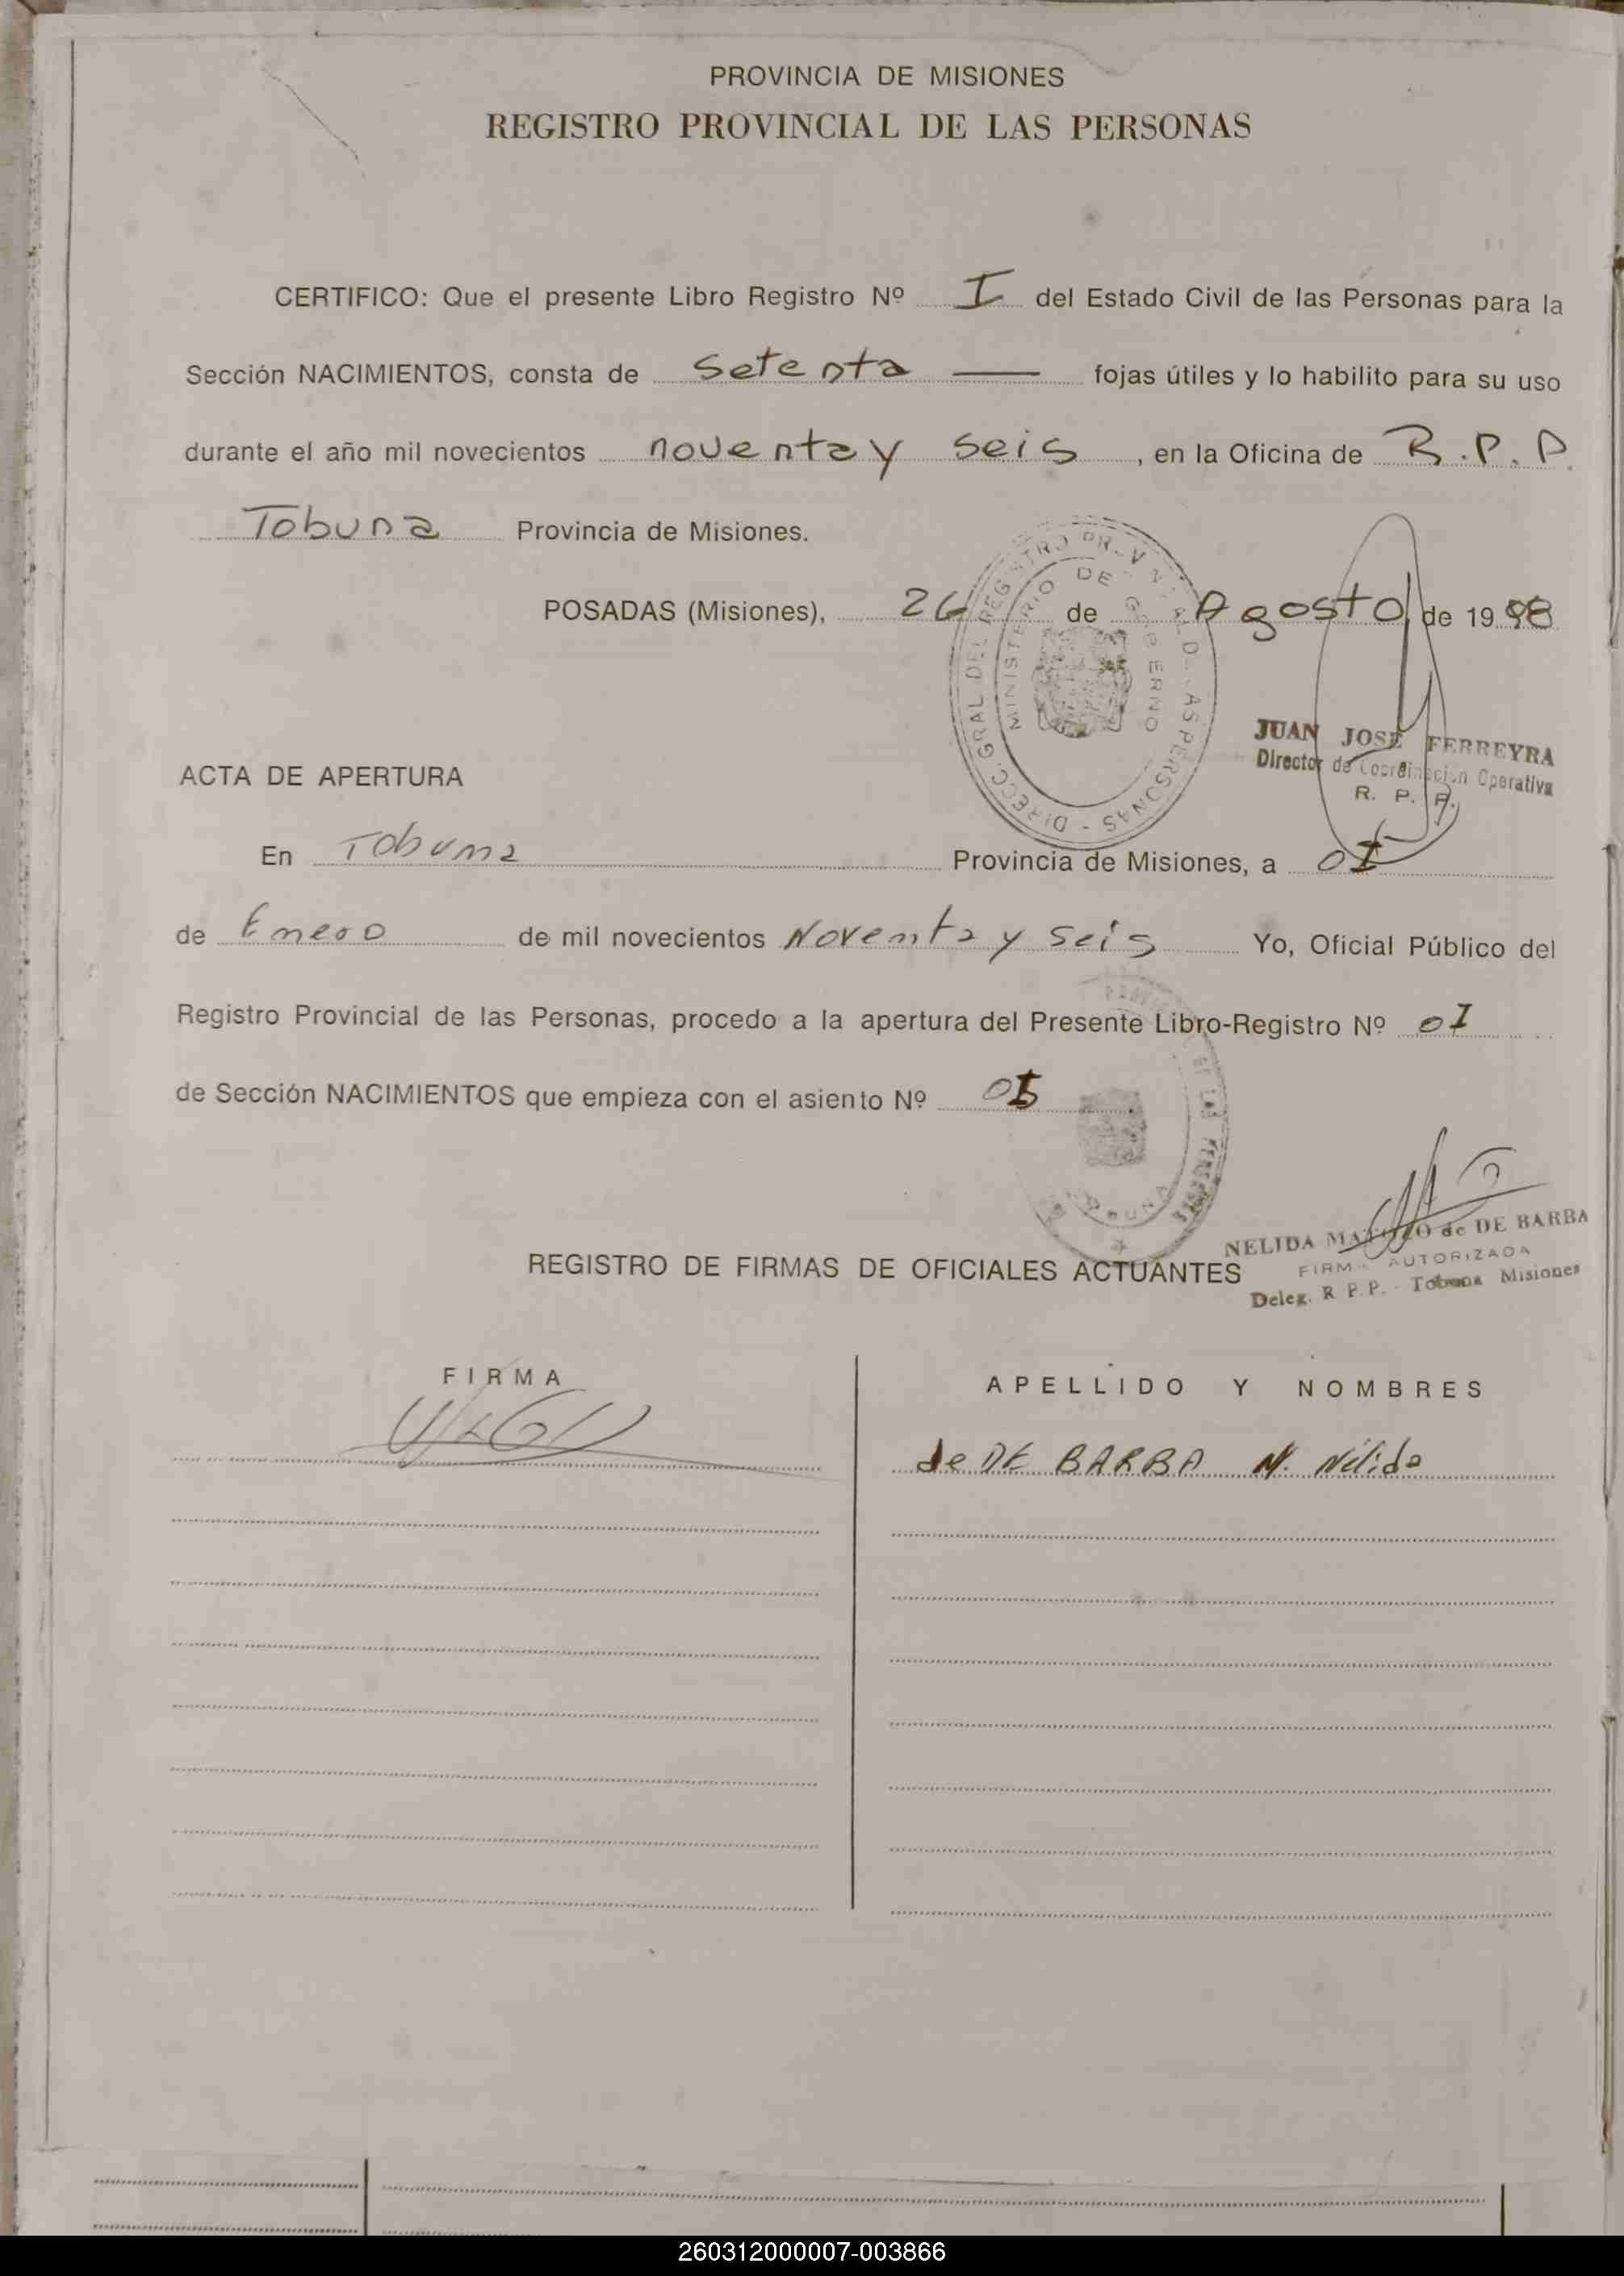 PROVINCIA DE MISIONES
REGISTRO PROVINCIAL DE LAS PERSONAS
CERTIFICO: Que el presente Libro Registro Nº I del Estado Civil de las Personas para la
Sección NACIMIENTOS, consta de setenta — fojas útiles y lo habilito para su uso
durante el año mil novecientos noventa y seis, en la Oficina de R.P.P.
Tobuna Provincia de Misiones.
POSADAS (Misiones), 26 de Agosto de 1998
DIRECC. GRAL DEL REGISTRO PROVINCIAL DE LAS PERSONAS
MINISTERIO DE GOBIERNO
JUAN JOSE FERREYRA
Director de Coordinacion Operativa
R. P. P.
ACTA DE APERTURA
En Tobuna Provincia de Misiones, a 01
de Enero de mil novecientos Noventa y seis Yo, Oficial Público del
Registro Provincial de las Personas, procedo a la apertura del Presente Libro-Registro Nº 01
de Sección NACIMIENTOS que empieza con el asiento Nº
DE LAS PERSONAS
TOBUNA
NELIDA de DE BARBA
FIRMA AUTORIZADA
Deleg. R.P.P. - Tobuna Misiones
REGISTRO DE FIRMAS DE OFICIALES ACTUANTES
FIRMA
APELLIDO Y NOMBRES
de DE BARBA N. Nélida
260312000007-003866